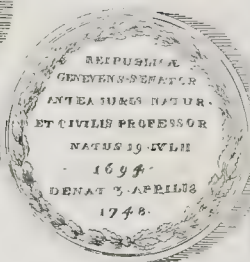 REIPUBLICÆ
GENEVENS·SENATOR
ANTEA IURIS NATUR·
ET CIVILIS PROFESSOR
NATUS 19·IVLII
·1694·
DENAT 3·APRILIS
1748·